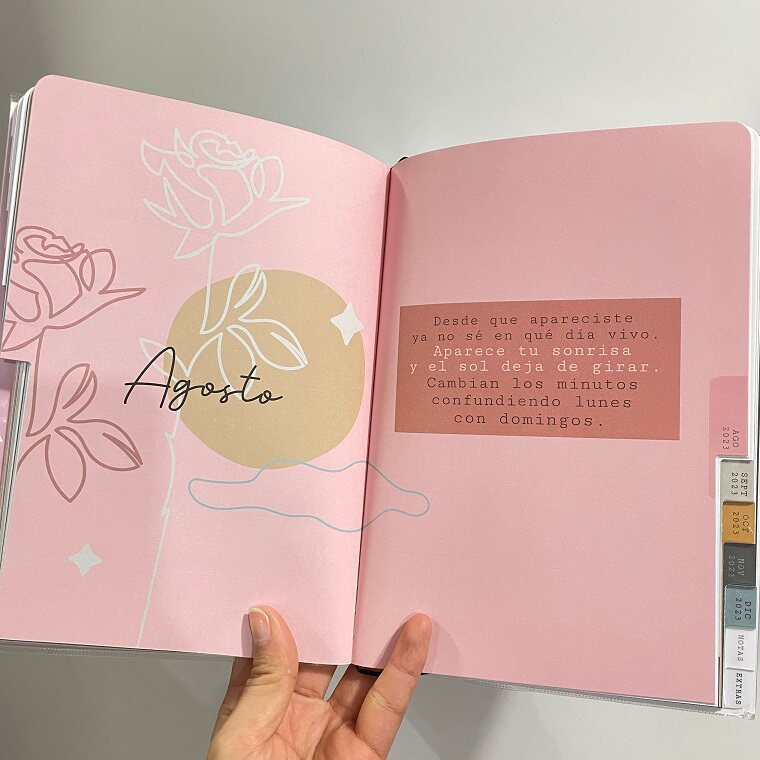 Agosto
Desde que apareciste
ya no sé en qué día vivo.
Aparece tu sonrisa
y el sol deja de girar.
Cambian los minutos
confundiendo lunes
con domingos.
AGO
2023
SEPT
2023
OCT
2023
NOV
2023
DIC
2023
NOTAS
EXTRAS